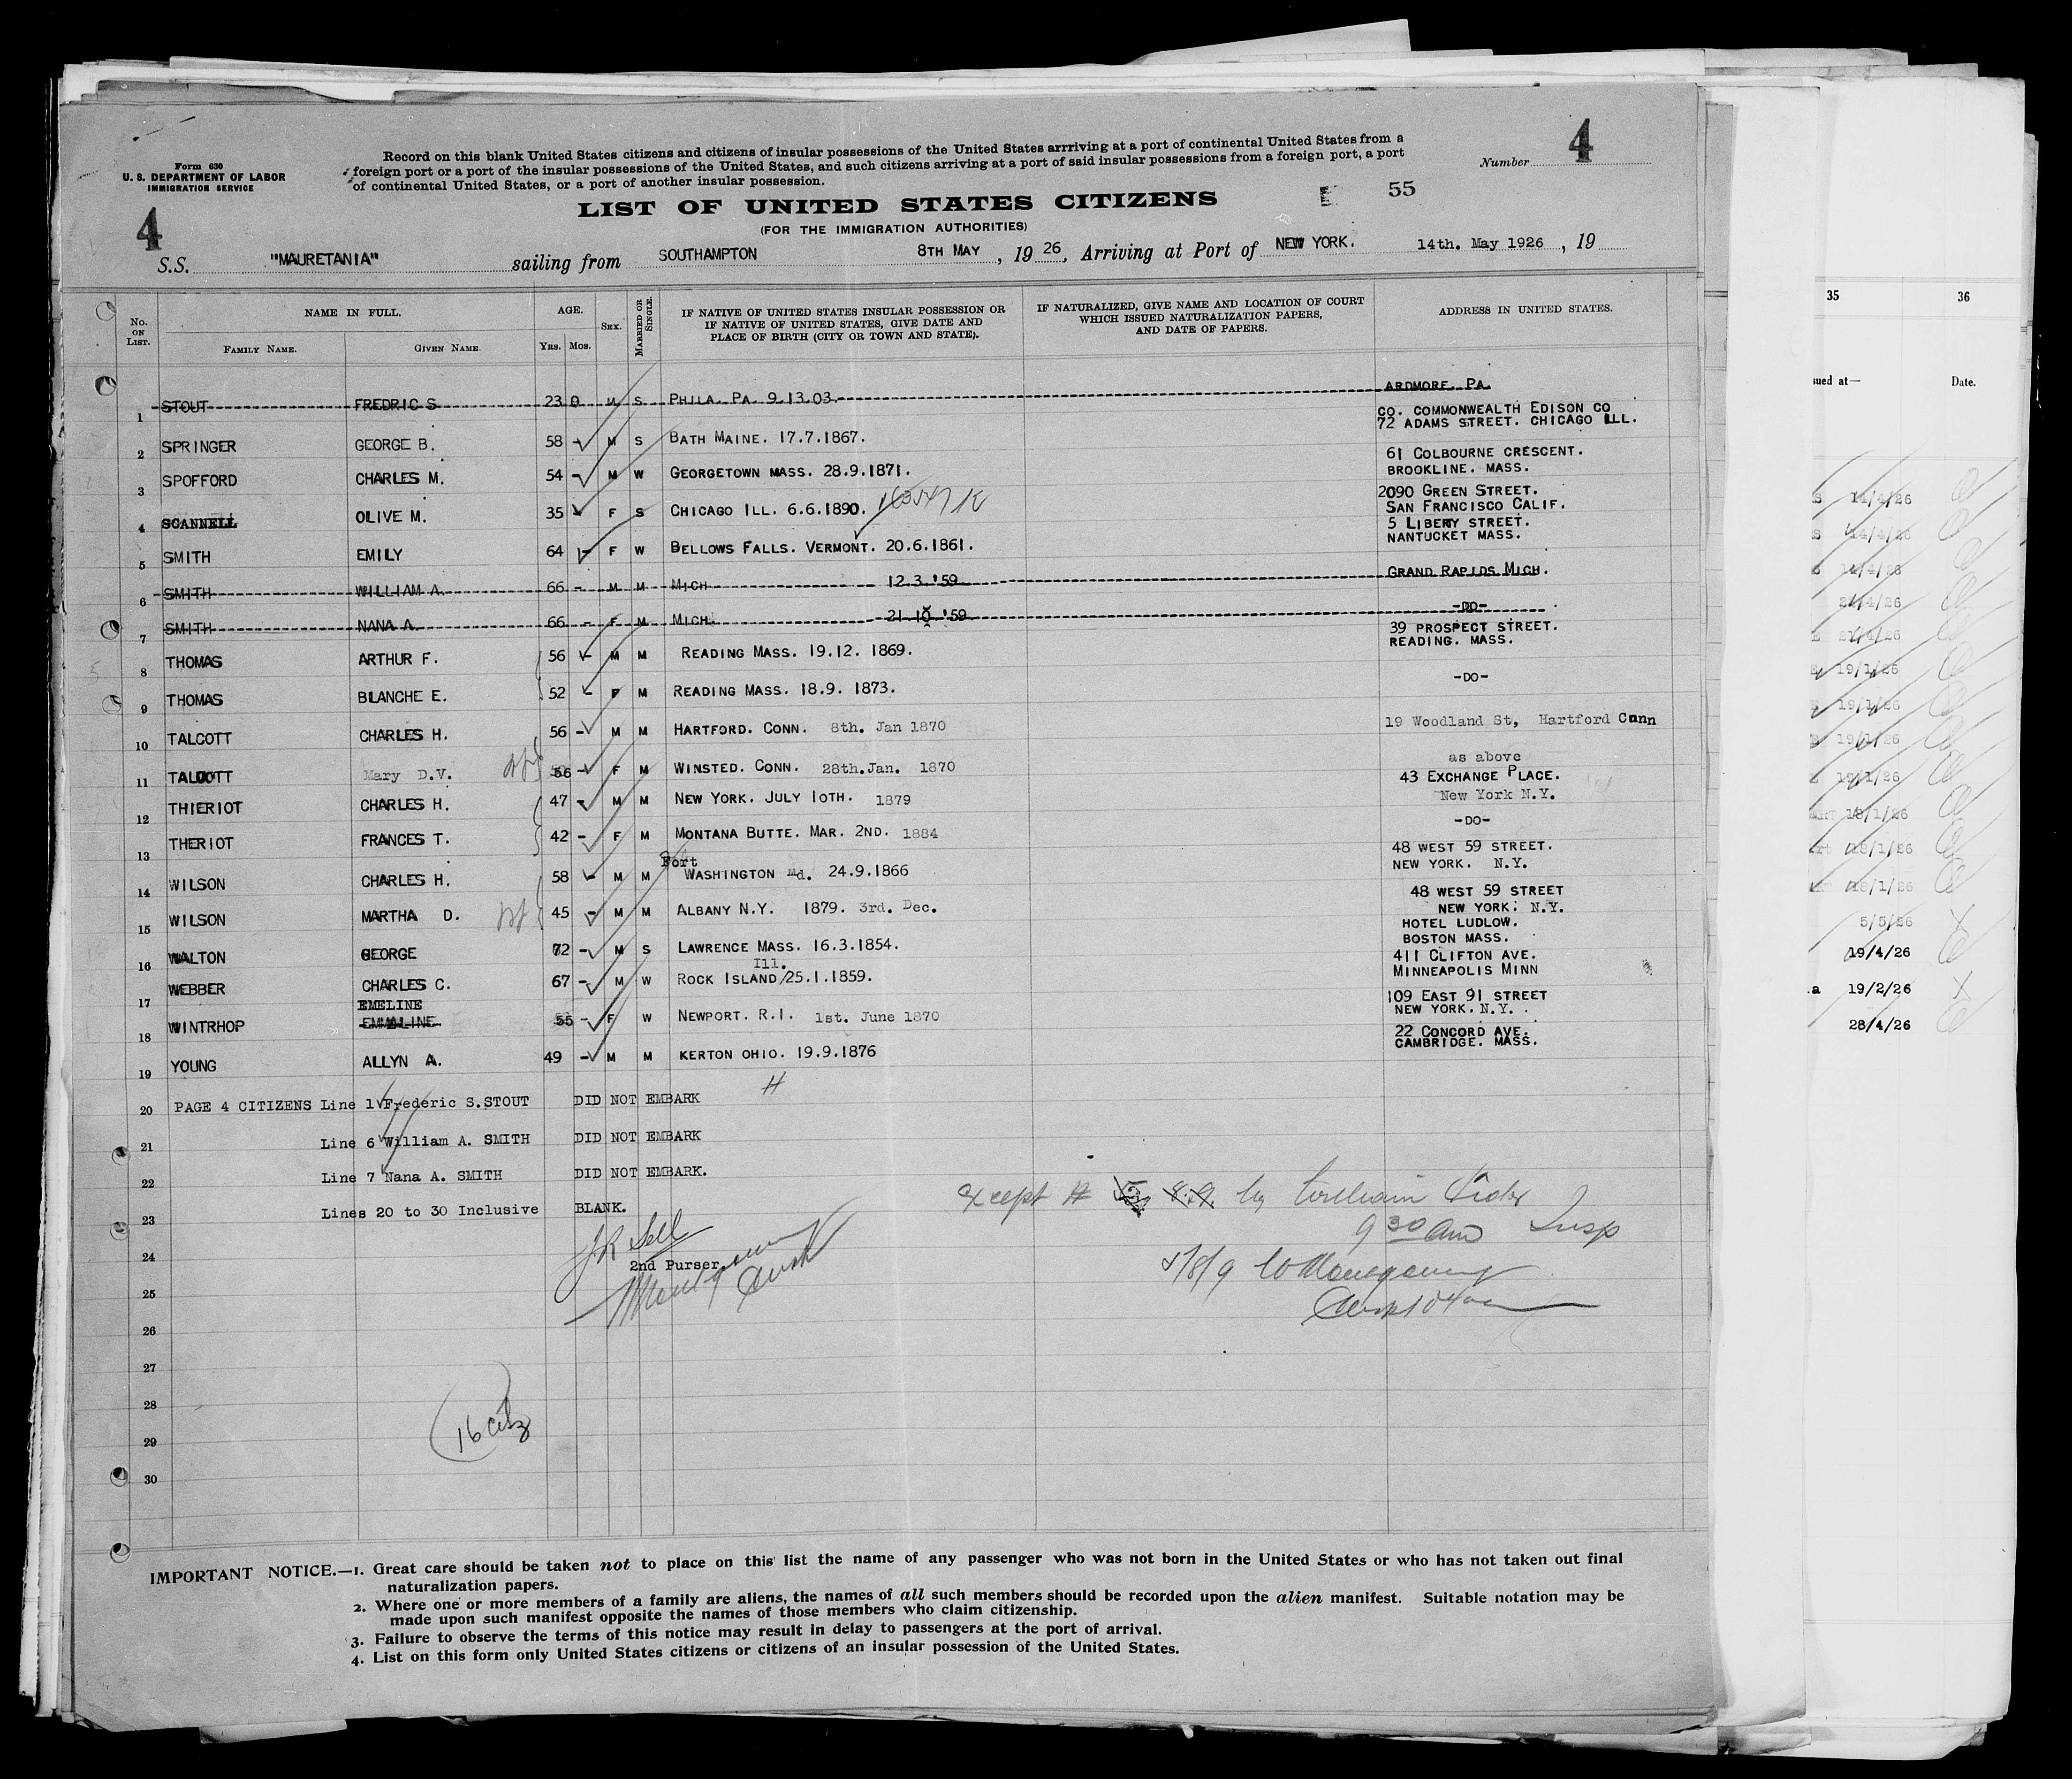 Form 630
U. S. DEPARTMENT OF LABOR
IMMIGRATION SERVICE
Record on this blank United States citizens and citizens of insular possessions of the United States arrriving at a port of continental United States from a
foreign port or a port of the insular possessions of the United States, and such citizens arriving at a port of said insular possessions from a foreign port, a port
of continental United States, or a port of another insular possession.
Number 4
55
LIST OF UNITED STATES CITIZENS
(FOR THE IMMIGRATION AUTHORITIES)
4
S.S. "MAURETANIA" sailing from SOUTHAMPTON 8TH MAY, 19 26, Arriving at Port of NEW YORK. 14th. May 1926, 19
No. ON LIST. NAME IN FULL. FAMILY NAME. GIVEN NAME. AGE. YRS. MOS. SEX. MARRIED OR SINGLE. IF NATIVE OF UNITED STATES INSULAR POSSESSION OR IF NATIVE OF UNITED STATES, GIVE DATE AND PLACE OF BIRTH (CITY OR TOWN AND STATE). IF NATURALIZED, GIVE NAME AND LOCATION OF COURT WHICH ISSUED NATURALIZATION PAPERS, AND DATE OF PAPERS. ADDRESS IN UNITED STATES.
1 STOUT FREDRIC S 23 0 M S PHILA. PA. 9.13.03. ARDMORE. PA.
2 SPRINGER GEORGE B. 58 - M S BATH MAINE. 17.7.1867. CO. COMMONWEALTH EDISON CO 72 ADAMS STREET. CHICAGO ILL.
3 SPOFFORD CHARLES M. 54 - M W GEORGETOWN MASS. 28.9.1871. 61 COLBOURNE CRESCENT. BROOKLINE. MASS.
4 SCANNELL OLIVE M. 35 - F S CHICAGO ILL. 6.6.1890. 2090 GREEN STREET. SAN FRANCISCO CALIF.
5 SMITH EMILY 64 - F W BELLOWS FALLS. VERMONT. 20.6.1861. 5 LIBERY STREET. NANTUCKET MASS.
6 SMITH WILLIAM A. 66 - M M MICH 12.3.'59 GRAND RAPIDS MICH.
7 SMITH NANA A. 66 - F M MICH. 21.10.'59 -DO-
8 THOMAS ARTHUR F. 56 - M M READING MASS. 19.12. 1869. 39 PROSPECT STREET. READING. MASS.
9 THOMAS BLANCHE E. 52 - F M READING MASS. 18.9. 1873. -DO-
10 TALCOTT CHARLES H. 56 - M M HARTFORD. CONN. 8th. Jan 1870 19 Woodland St, Hartford Conn
11 TALCOTT Mary D.V. 56 - F M WINSTED. CONN. 28th.Jan. 1870 as above
12 THIERIOT CHARLES H. 47 - M M NEW YORK. JULY 10TH. 1879 43 EXCHANGE PLACE. New York N.Y.
13 THERIOT FRANCES T. 42 - F M MONTANA BUTTE. MAR. 2ND. 1884 -DO-
14 WILSON CHARLES H. 58 - M M Fort WASHINGTON Md. 24.9.1866 48 WEST 59 STREET. NEW YORK. N.Y.
15 WILSON MARTHA D. 45 - M M ALBANY N.Y. 1879. 3rd. Dec. 48 WEST 59 STREET NEW YORK. N.Y.
16 WALTON GEORGE 72 - M S LAWRENCE MASS. 16.3.1854. HOTEL LUDLOW. BOSTON MASS.
17 WEBBER CHARLES C. 67 - M W ROCK ISLAND/25.1.1859. Ill. 411 CLIFTON AVE. MINNEAPOLIS MINN
18 WINTRHOP EMELINE EMMALINE 55 - F W NEWPORT. R.I. 1st. June 1870 109 EAST 91 STREET NEW YORK. N.Y.
19 YOUNG ALLYN A. 49 - M M KERTON OHIO. 19.9.1876 22 CONCORD AVE. CAMBRIDGE. MASS.
20 PAGE 4 CITIZENS Line 1 Frederic S.STOUT DID NOT EMBARK
21 Line 6 William A. SMITH DID NOT EMBARK
22 Line 7 Nana A. SMITH DID NOT EMBARK.
23 Lines 20 to 30 Inclusive BLANK.
24 2nd Purser.
25
26
27
28
29
30
Except # by William
9 30 am Insp
16 citz
IMPORTANT NOTICE.—1. Great care should be taken not to place on this list the name of any passenger who was not born in the United States or who has not taken out final
naturalization papers.
2. Where one or more members of a family are aliens, the names of all such members should be recorded upon the alien manifest. Suitable notation may be
made upon such manifest opposite the names of those members who claim citizenship.
3. Failure to observe the terms of this notice may result in delay to passengers at the port of arrival.
4. List on this form only United States citizens or citizens of an insular possession of the United States.
35 36
sued at— Date.
14/4/26
14/4/26
14/4/26
21/4/26
21/4/26
19/1/26
19/1/26
19/1/26
19/1/26
18/1/26
18/1/26
18/1/26
5/5/26
19/4/26
19/2/26
28/4/26